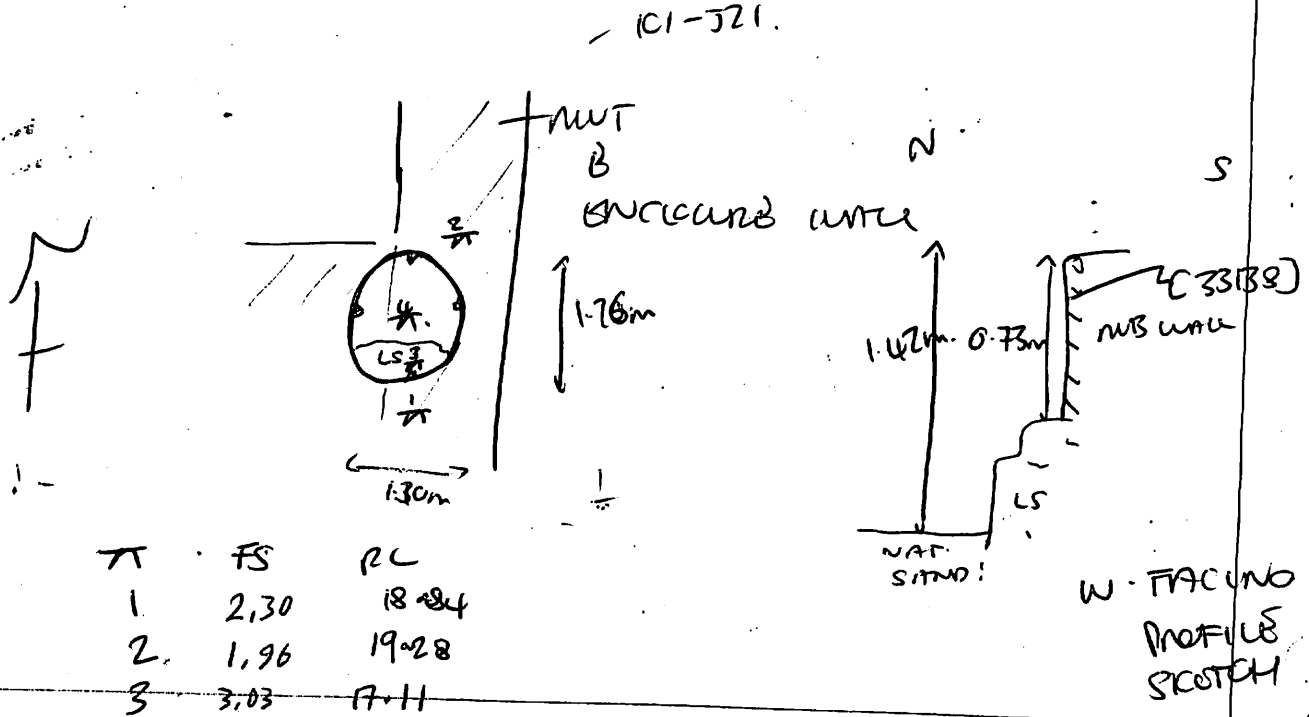 1C1-J21.
MUT
B
ENCLOSURE WALL
N
S
2
4
LS 3
1
1.76m
1.30m
1.42m. 0.73m
[33138]
MUB WALL
LS
NAT.
SAND!
W-FACING
PROFILE
SKETCH
FS RL
1 2,30 18.84
2. 1,96 19.28
3 3,03 17.11